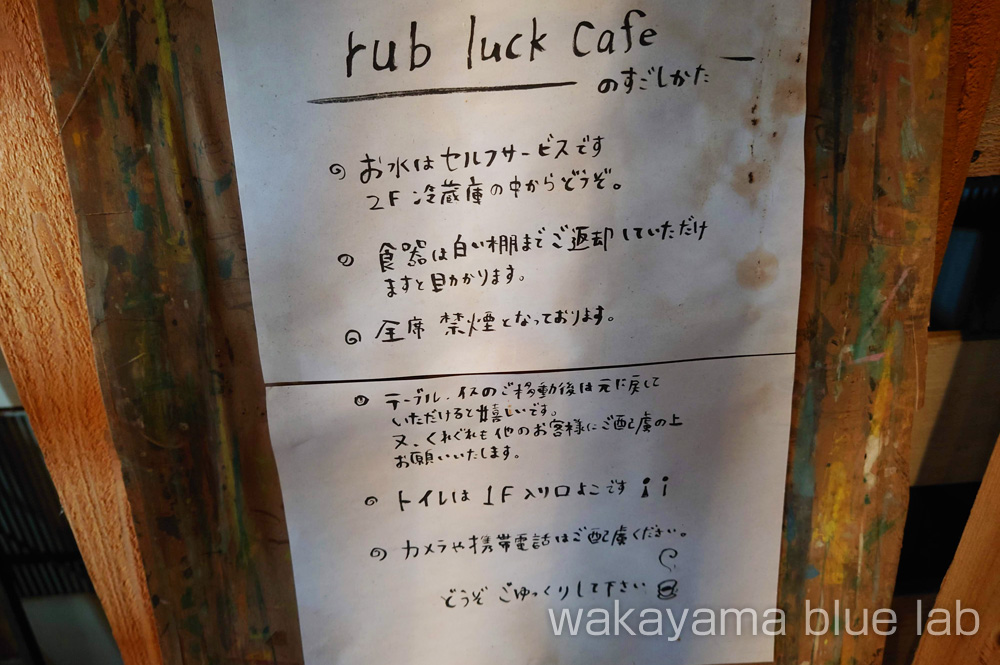 rub luck cafe
のすごしかた
お水はセルフサービスです
2F 冷蔵庫の中からどうぞ。
食器は白い棚までご返却していただけ
ますと助かります。
全席 禁煙となっております。
テーブル・イスのご移動後は元に戻して
いただけると嬉しいです。
又、くれぐれも他のお客様にご配慮の上
お願いいたします。
トイレは 1F 入り口よこです
カメラや携帯電話はご配慮ください。
どうぞ ごゆっくりして下さい
wakayama blue lab